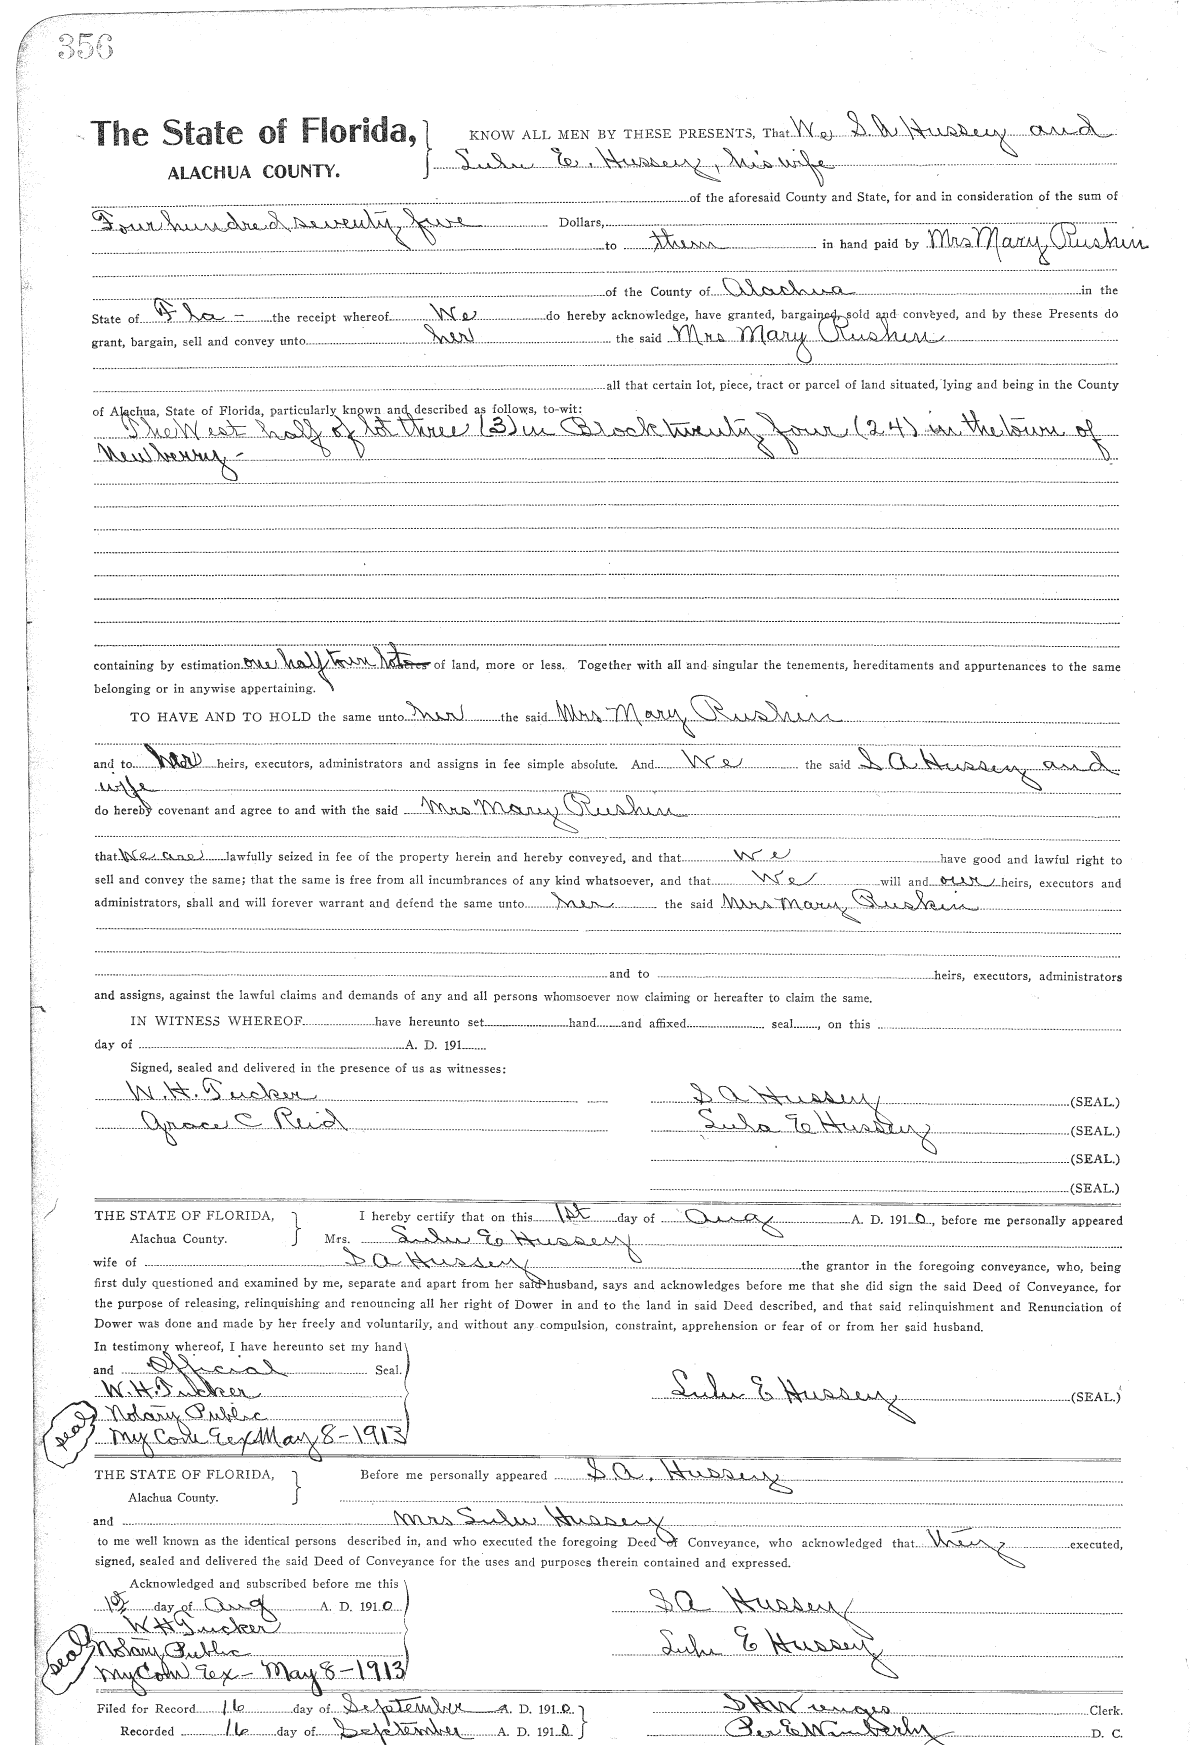 356
The State of Florida, KNOW ALL MEN BY THESE PRESENTS, That We S. A Hussey and
ALACHUA COUNTY. Lulu E. Hussey, his wife
of the aforesaid County and State, for and in consideration of the sum of
Four hundred seventy five Dollars,
to them in hand paid by Mrs Mary Rushin
of the County of Alachua in the
State of Fla - the receipt whereof We do hereby acknowledge, have granted, bargained, sold and conveyed, and by these Presents do
grant, bargain, sell and convey unto her the said Mrs Mary Rushin
all that certain lot, piece, tract or parcel of land situated, lying and being in the County
of Alachua, State of Florida, particularly known and described as follows, to-wit:
The West half of lot three (3) in Block twenty four (24) in the town of
Newberry -
containing by estimation one half town lot of land, more or less. Together with all and singular the tenements, hereditaments and appurtenances to the same
belonging or in anywise appertaining.
TO HAVE AND TO HOLD the same unto her the said Mrs Mary Rushin
and to her heirs, executors, administrators and assigns in fee simple absolute. And We the said S A Hussey and
wife
do hereby covenant and agree to and with the said Mrs Mary Rushin
that We are lawfully seized in fee of the property herein and hereby conveyed, and that We have good and lawful right to
sell and convey the same; that the same is free from all incumbrances of any kind whatsoever, and that We will and our heirs, executors and
administrators, shall and will forever warrant and defend the same unto her the said Mrs Mary Rushin
and to heirs, executors, administrators
and assigns, against the lawful claims and demands of any and all persons whomsoever now claiming or hereafter to claim the same.
IN WITNESS WHEREOF have hereunto set hand and affixed seal, on this
day of A. D. 191
Signed, sealed and delivered in the presence of us as witnesses:
W. H. Tucker S A Hussey (SEAL.)
Grace C Reid Lula E Hussey (SEAL.)
(SEAL.)
(SEAL.)
THE STATE OF FLORIDA, I hereby certify that on this 1st day of Aug A. D. 1910, before me personally appeared
Alachua County. Mrs. Lulu E Hussey
wife of S A Hussey the grantor in the foregoing conveyance, who, being
first duly questioned and examined by me, separate and apart from her said husband, says and acknowledges before me that she did sign the said Deed of Conveyance, for
the purpose of releasing, relinquishing and renouncing all her right of Dower in and to the land in said Deed described, and that said relinquishment and Renunciation of
Dower was done and made by her freely and voluntarily, and without any compulsion, constraint, apprehension or fear of or from her said husband.
In testimony whereof, I have hereunto set my hand
and Official Seal.
W. H. Tucker Lulu E Hussey (SEAL.)
Notary Public
seal My Com Eex May 8-1913
THE STATE OF FLORIDA, Before me personally appeared S A. Hussey
Alachua County.
and Mrs Lulu Hussey
to me well known as the identical persons described in, and who executed the foregoing Deed of Conveyance, who acknowledged that they executed,
signed, sealed and delivered the said Deed of Conveyance for the uses and purposes therein contained and expressed.
Acknowledged and subscribed before me this
1st day of Aug A. D. 1910 S A Hussey
W H Tucker
seal Notary Public Lulu E Hussey
My Com Eex - May 8-1913
Filed for Record 16 day of September A. D. 1910. S H Wienges Clerk.
Recorded 16 day of September A. D. 1910 Per E Wimberly D. C.